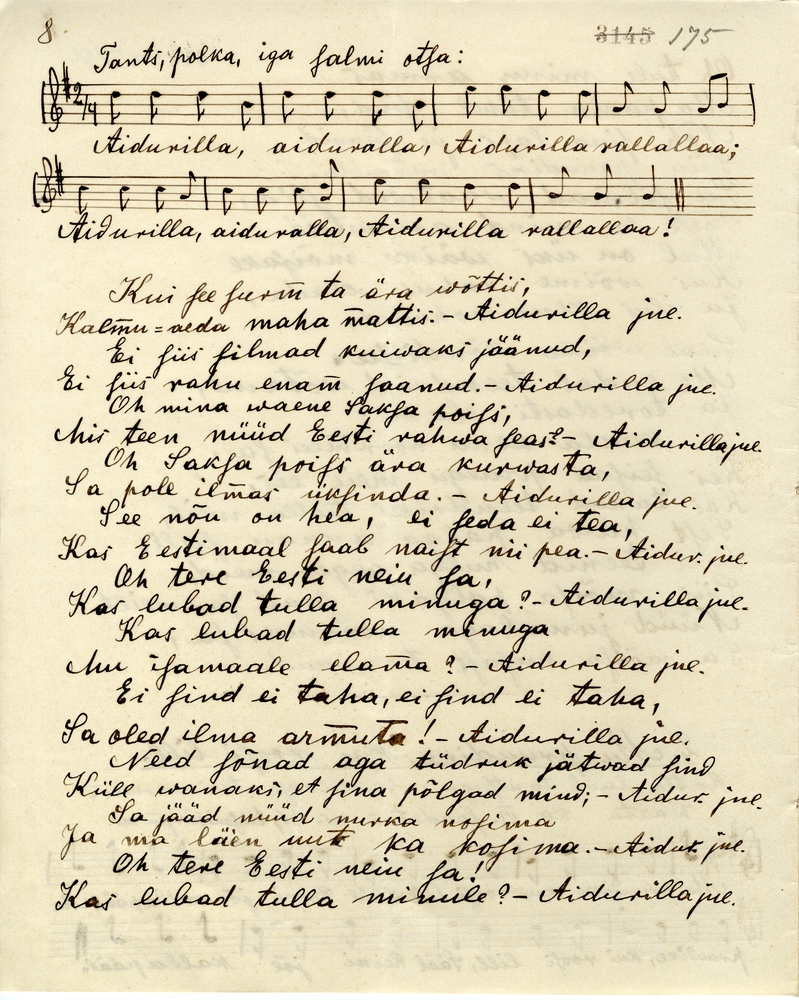 8.
3145 175
Tants, polka, iga salmi otsa:
2/4
Aidurilla, aiduralla, Aidurilla rallallaa;
Aidurilla, aiduralla, Aidurilla rallallaa!
Kui see surm̄ ta ära wõttis,
Kalm̄u=aeda maha m̄attis. - Aidurilla jne.
Ei siis silmad kuiwaks jäänud,
Ei siis rahu enam̄ saanud. - Aidurilla jne.
Oh mina waene Saksa poiss,
Mis teen nüüd Eesti rahwa seas? - Aidurilla jne.
Oh Saksa poiss ära kurwasta,
Sa pole ilm̄as üksinda. - Aidurilla jne.
See nõu on hea, ei seda ei tea,
Kas Eestimaal saab naist nii pea. - Aidur. jne.
Oh tere Eesti neiu sa,
Kas lubad tulla minuga? - Aidurilla jne.
Kas lubad tulla minuga
Mu isamaale elam̄a? - Aidurilla jne.
Ei sind ei taha, ei sind ei taha,
Sa oled ilma arm̄uta! - Aidurilla jne.
Need sõnad aga tüdruk jätwad sind
Küll wanaks, et sina põlgad mind; - Aidur. jne.
Sa jääd nüüd nurka nosima
Ja ma läen uut ka kosima. - Aidur. jne.
Oh tere Eesti neiu sa!
Kas lubad tulla minule? - Aidurilla jne.